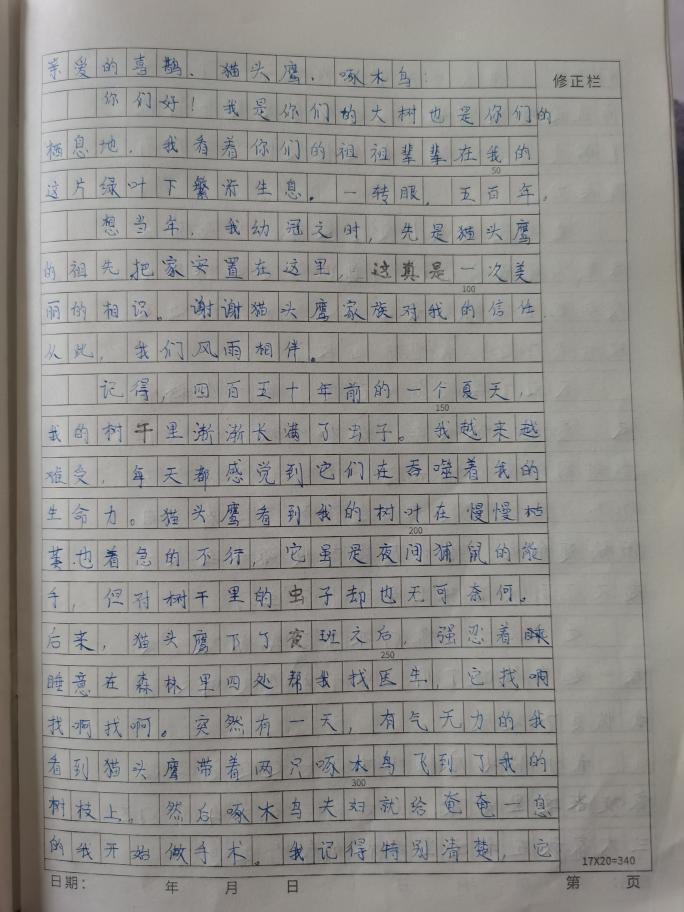 亲爱的喜鹊、猫头鹰、啄木鸟：
修正栏
你们好！我是你们的大树也是你们的
栖息地，我看着你们的祖祖辈辈在我的
50
这片绿叶下繁衍生息。一转眼，五百年，
想当年，我幼冠之时，先是猫头鹰
的祖先把家安置在这里，这真是一次美
100
丽的相识。谢谢猫头鹰家族对我的信任
从此，我们风雨相伴。
记得，四百五十年前的一个夏天，
150
我的树干里渐渐长满了虫子。我越来越
难受，每天都感觉到它们在吞噬着我的
生命力。猫头鹰看到我的树叶在慢慢枯
200
黄也着急的不行，它虽是夜间捕鼠的能
手，但对树干里的虫子却也无可奈何。
后来，猫头鹰下了夜班之后，强忍着
250
睡意在森林里四处帮我找医生，它找啊
找啊找啊。突然有一天，有气无力的我
看到猫头鹰带着两只啄木鸟飞到了我的
300
树枝上。然后啄木鸟夫妇就给奄奄一息
的我开始做手术。我记得特别清楚，它
17X20=340
日期： 年 月 日 第 页